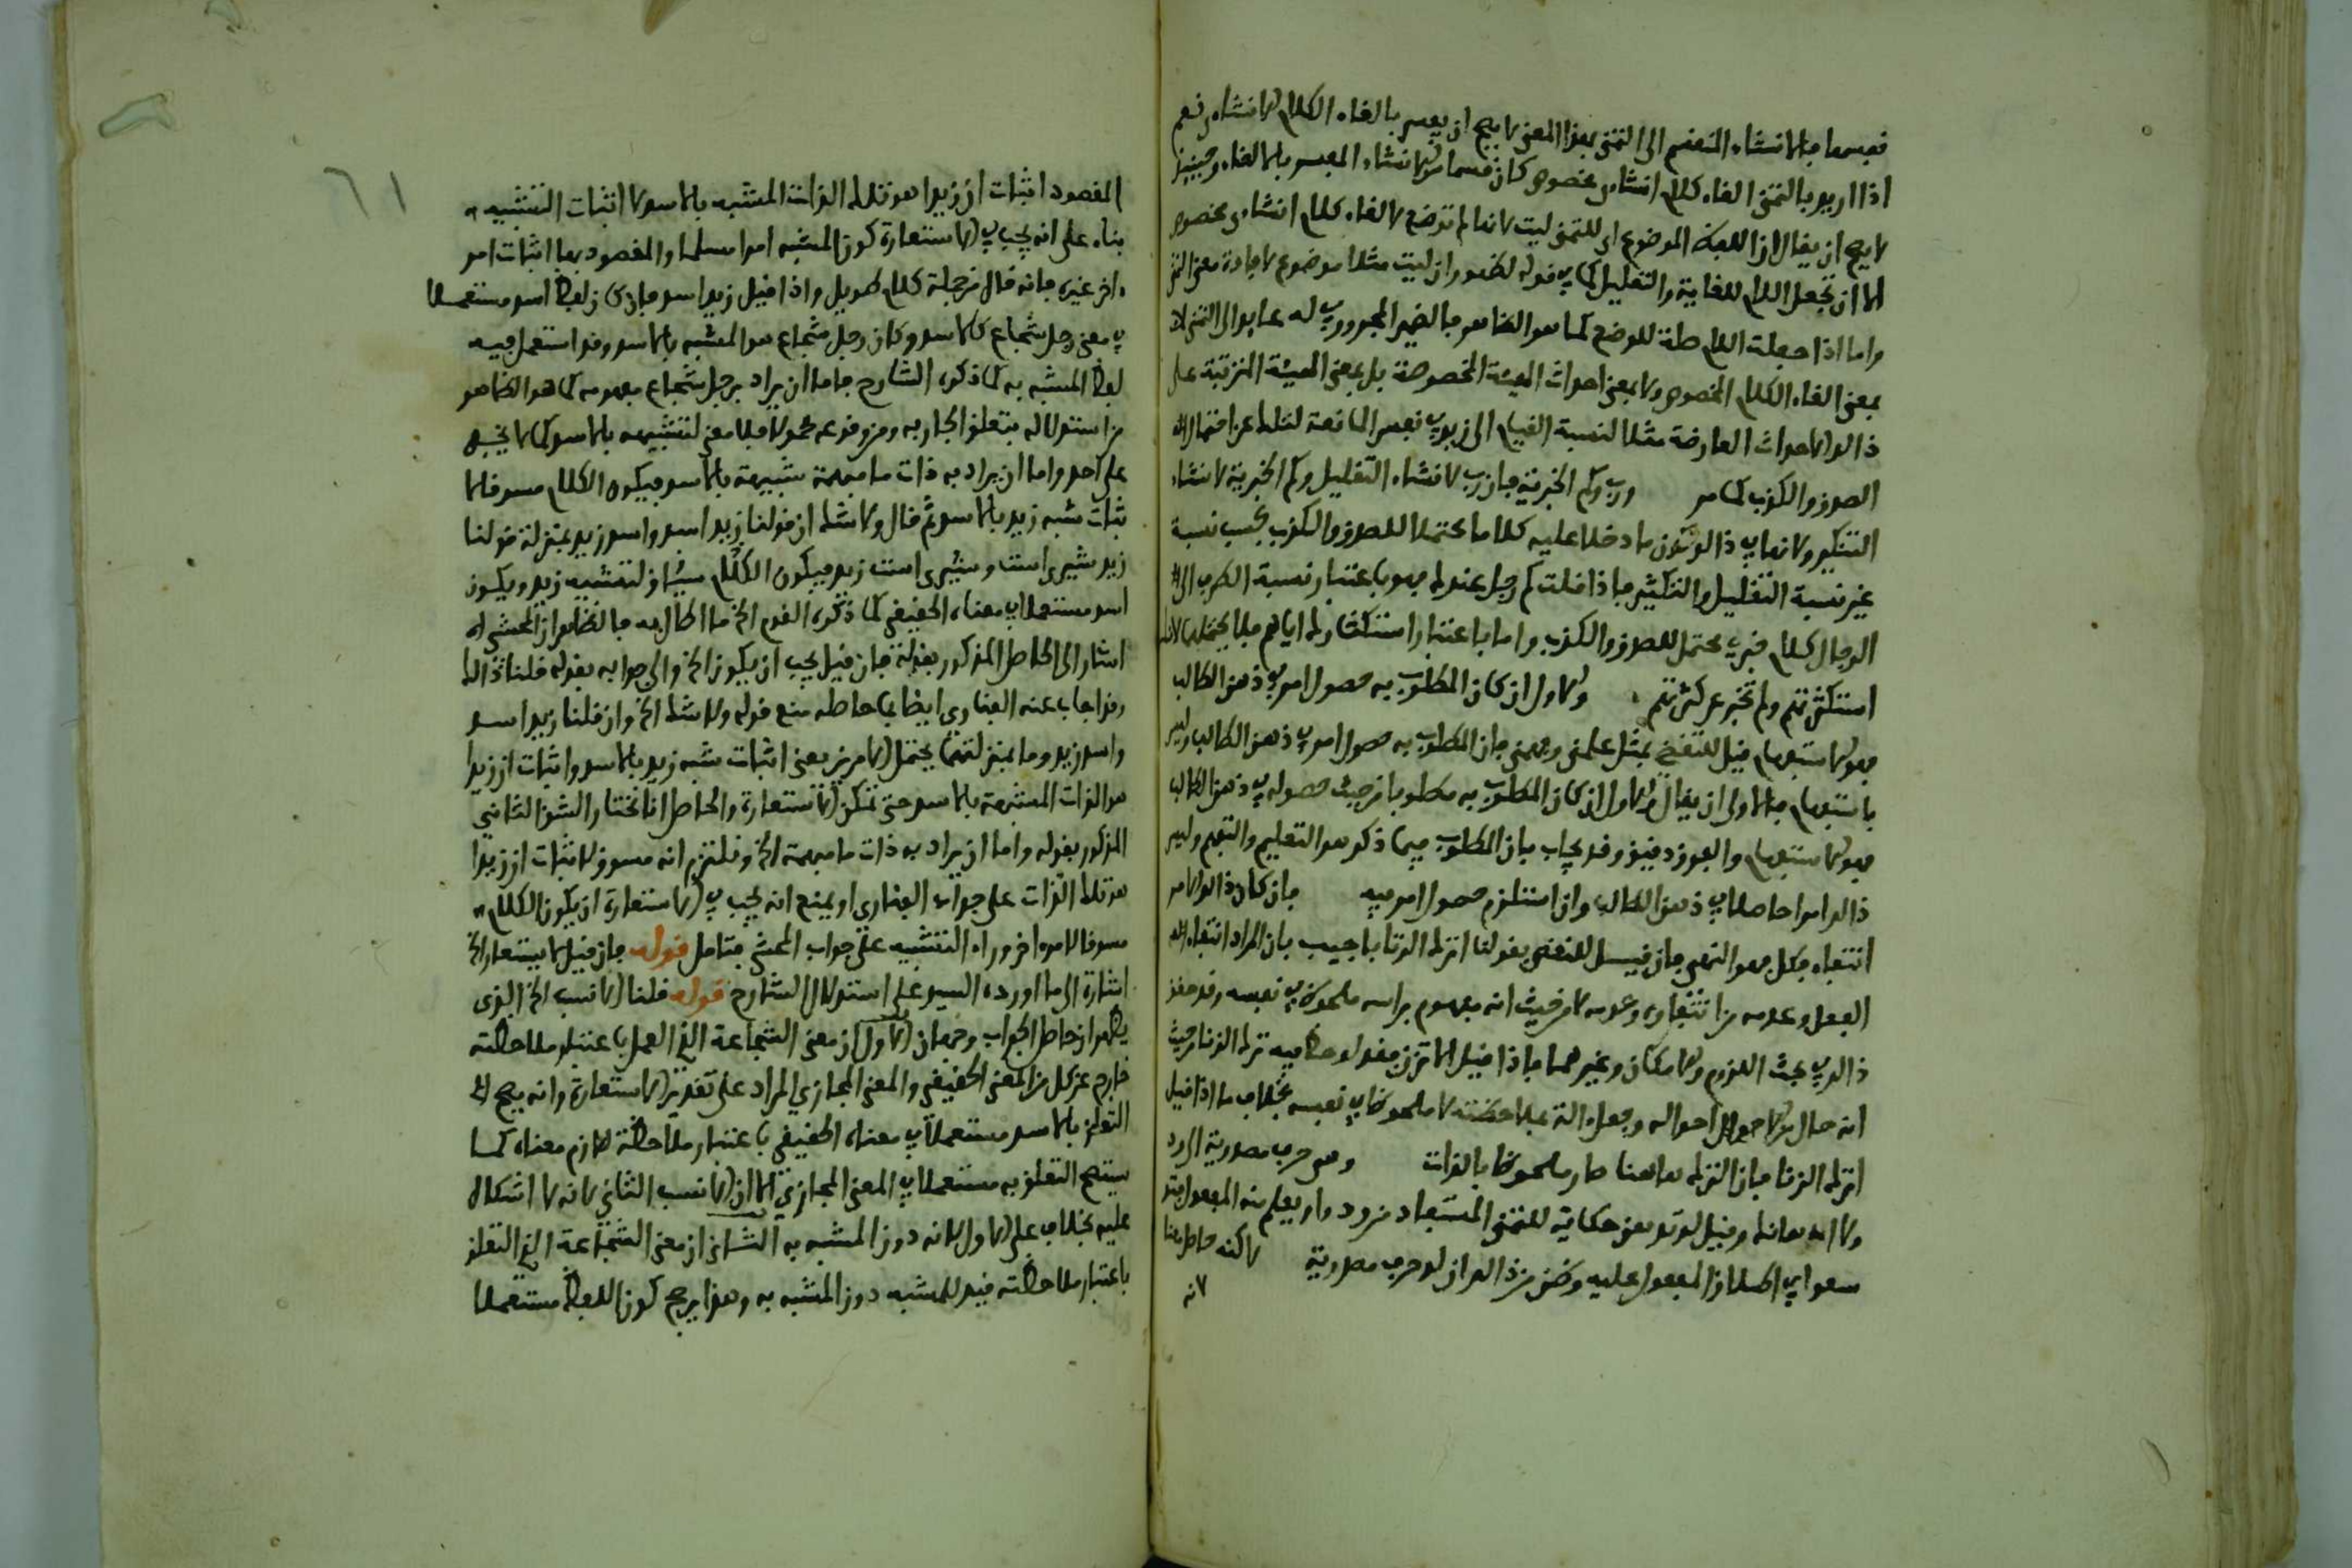 فقسمها فالانشاء المنقسم الى التمنى بهذا المعنى لا يصح ان يفسر بالقاء الكلام الانشاءى نعم
اذا اريد بالتمنى القاء كلام انشاءى مخصوص كان قسما من الانشاء المفسر بالالقاء وحينئذ
لا يصح ان يقال ان اللفظ الموضوع اى للتمنى ليت لانها لم توضع لالقاء كلام انشاءى مخصوص
الا ان تجعل اللام للغاية والتعليل كما في قوله لظهور ان ليت مثلا موضوع لافادة معنى التمنى
واما اذا جعلت اللام صلة للوضع كما هو الظاهر فالضمير المجرور في له عايد الى التمنى لا
بمعنى القاء الكلام المخصوص ولا بمعنى احداث الهيئة المخصوصة بل بمعنى الهيئة المترتبة على
ذالك الاحداث العارضة مثلا لنسبة القيام الى زيد في نفسر المانعة لتلك عن احتمال
الصدق والكذب كما مر ورب وكم الخبرية فان رب لانشاء التقليل وكم الخبرية لانشاء
التكثير ولا ينافي ذالك كون ما دخلا عليه كلاما محتملا للصدق والكذب بحسب نسبة
غير نسبة التقليل والتكثير فاذا قلت كم رجل عندك فهو باعتبار نسبة الظرف الى
الرجال كلام خبري محتمل للصدق والكذب واما باعتبار استكثارك اياهم فلا يحتملهما لانك
استكثرتهم ولم تخبر عن كثرتهم والاول ان كان المطلوب به حصول امر في ذهن الطالب
فهو الاستفهام قيل للنقض بمثل علمنى وفهمنى فان المطلوب به حصول امر في ذهن الطالب وليس
باستفهام فالاولى ان يقال والاول ان كان المطلوب به مطلوبا من حيث حصوله في ذهن الطالب
فهو الاستفهام والفرق دقيق وقد يجاب بان المطلوب فيما ذكر هو التعليم والتفهيم وليس
ذالك امرا حاصلا في ذهن الطالب وان استلزم حصول امر فيه فان كان ذالك الامر
انتفاء فعل فهو النهى فان قيل للنقض بقولنا اترك الزنا باجيب بان المراد انتفاء
الفعل وعدمه من انتفاء وعدمه لا من حيث انه مفهوم براسه ملحوظ في نفسه وقد حقق
ذالك في بحث اللزوم والامكان وغيرهما فاذا قيل لا تزن فقد لوحظ فيه ترك الزنا من حيث
انه حال من احوال احواله وجعل الة بملاحظته لا ملحوظا في نفسه بخلاف ما اذا قيل
اترك الزنا فان الترك هاهنا صار ملحوظا بالذات وهى حرف مصدرية
ولا اله هانك وقيل لو تو بعض حكاية للتمنى المستفاد من ود واو يعلم منه المفعول
سعوا في اطلاق المفعول عليه وظن من ذالك ان لو حرف مصدرية لاكنه حاصل
لانه
٦١
المقصود اثبات ان زيدا هو تلك الذات المشبه بالاسد لا اثبات التشبيه
بناء على انه يجب في الاستعارة كون المشبه امرا مسلما والمقصود بها اثبات امر
ءاخر غيره فانه قال من جملة كلام طويل واذا قيل زيد اسد فان كان لفظ اسد مستعملا
في معنى رجل شجاع كالاسد وكان رجل شجاع هو المشبه بالاسد وقد استعمل فيه
لفظ المشبه به كما ذكره الشارح فاما ان يراد برجل شجاع مفهومه كما هو الظاهر
من استدلاله بتعلق الجار به ومن وقوعه محمولا فلا معنى لتشبيهه بالاسد كما لا يخفى
على احد واما ان يراد به ذات ما مبهمة شبيهة بالاسد فيكون الكلام مسوقا لا
ثبات شبه زيد بالاسد ثم قال ولا شك ان قولنا زيد اسد واسد زيد بمنزلة قولنا
زيد شيرى است وشيرى است زيد فيكون الكلام سيق لتشبيه زيد ويكون
اسد مستعملا في معناه الحقيقى كما ذكره القوم الخ ما اطال به فالظاهر ان المحشى
اشار الى الحاصل المذكور بقوله فان قيل يجب ان يكون الخ والى جوابه بقوله قلنا ذالك
وقد اجاب عنه الفنارى ايضا بما حاصله منع قوله ولا شك الخ وان قلنا زيد اسد
واسد زيد وما بمنزلتهما يحتمل الامرين يعنى اثبات شبه زيد بالاسد واثبات ان زيدا
هو الذات المشبهة بالاسد حتى تمكن الاستعارة والحاصل انا نختار الشق الثانى
المذكور بقوله واما ان يراد به ذات ما مبهمة الخ ونلتزم انه مسوق لاثبات ان زيدا
هو تلك الذات على جواب الفنارى او يمنع انه يجب في الاستعارة ان يكون الكلام
مسوقا لامر ءاخر وراء التشبيه على جواب المحشى فتامل قوله فان قيل لا يستعار الخ
اشارة الى ما اورده السيد على استدلال الشارح قوله قلنا الانسب الخ الذى
يظهر ان حاصل الجواب وجهان الاول ان معنى الشجاعة الذى العمل باعتبار ملاحظته
خارج عن كل من المعنى الحقيقى والمعنى المجازي المراد على تقدير الاستعارة وانه يصح
التعلق بالاسد مستعملا في معناه الحقيقى باعتبار ملاحظة لازم معناه كما
يستقيم التعلق به مستعملا في المعنى المجازي الا ان الانسب الثانى لانه لا اشكال
عليه بخلاف على الاول لانه دون المشبه به الثانى ان معنى الشجاعة الذى التعلق
باعتبار ملاحظته قيد للمشبه دون المشبه به وهذا يرجح كون اللفظ مستعملا